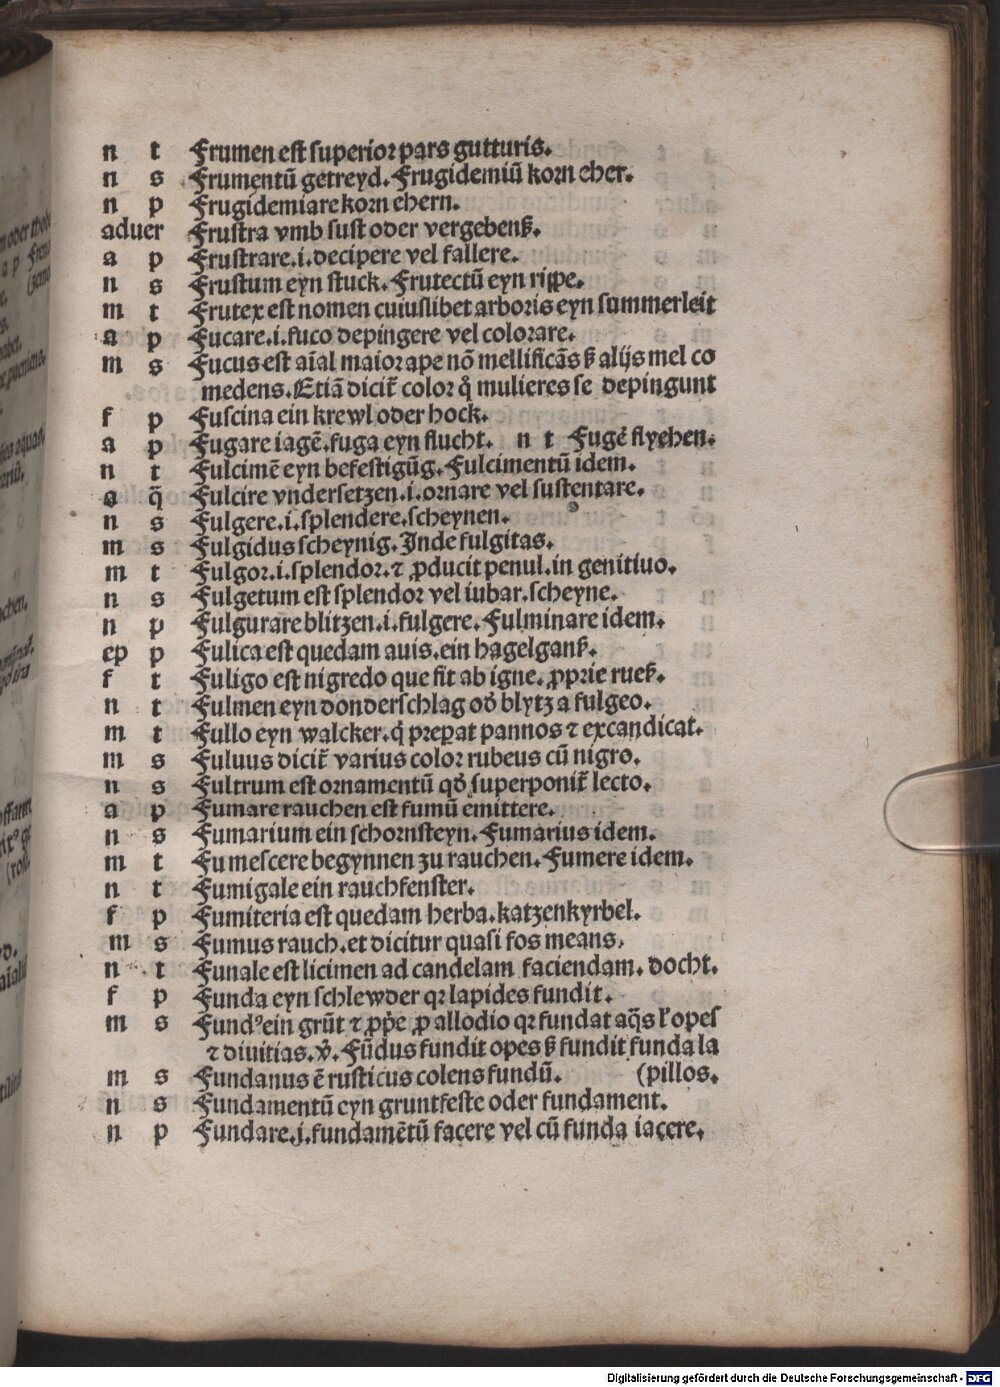 n t Frumen est superior pars gutturis.
n s Frumentū getreyd. Frugidemiū korn eher.
n p Frugidemiare korn ehern.
aduer Frustra vmb sust oder vergebenß.
a p Frustrare .i. decipere vel fallere.
n s Frustum eyn stuck. Frutectū eyn rippe.
m t Frutex est nomen cuiuslibet arboris eyn summerleit
a p Fucare .i. fuco depingere vel colorare.
m s Fucus est aīal maior ape nō mellificās sꝫ alijs mel co
medens. Etiā dicit̄ color q̊ mulieres se depingunt
f p Fuscina ein krewl oder hock.
a p Fugare iagē. fuga eyn flucht. n t Fugē flyehen.
n t Fulcimē eyn befestigūg. Fulcimentū idem.
a q̄ Fulcire vndersetzen .i. ornare vel sustentare.
n s Fulgere .i. splendere. scheynen.
m s Fulgidus scheynig. Inde fulgitas.
m t Fulgor .i. splendor. ⁊ ꝓducit penul. in genitiuo.
n s Fulgetum est splendor vel iubar. scheyne.
n p Fulgurare blitzen .i. fulgere. Fulminare idem.
ep p Fulica est quedam auis. ein hagelganß.
f t Fuligo est nigredo que fit ab igne. ꝓprie rueß.
n t Fulmen eyn donderschlag od̄ blytz a fulgeo.
m t Fullo eyn walcker. q̇ preꝑat pannos ⁊ excandicat.
m s Fuluus dicit̄ varius color rubeus cū nigro.
n s Fultrum est ornamentū qd̄ superponit̄ lecto.
a p Fumare rauchen est fumū emittere.
n s Fumarium ein schornsteyn. Fumarius idem.
m t Fumescere begynnen zu rauchen. Fumere idem.
n t Fumigale ein rauchfenster.
f p Fumiteria est quedam herba. katzenkyrbel.
m s Fumus rauch. et dicitur quasi fos means.
n t Funale est licimen ad candelam faciendam. docht.
f p Funda eyn schlewder qꝛ lapides fundit.
m s Fundꝰ ein grūt ⁊ ꝓp̄e ꝓ allodio qꝛ fundat aq̄s ł opes
⁊ diuitias. v̄. Fūdus fundit opes sꝫ fundit funda la
m s Fundanus ē rusticus colens fundū. (pillos.
n s Fundamentū eyn gruntfeste oder fundament.
n p Fundare .i. fundamētū facere vel cū funda iacere.
Digitalisierung gefördert durch die Deutsche Forschungsgemeinschaft - DFG